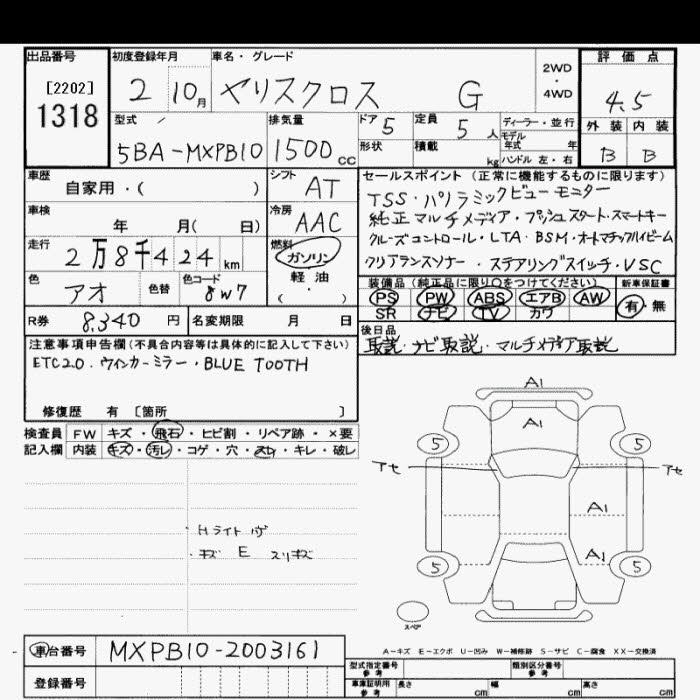 出品番号 初度登録年月 車名・グレード 評価点
[2202]
1318
2 10月 ヤリスクロス G 2WD・4WD 4.5
外装 内装
B B
型式 排気量 ドア 5 定員 5人 ディーラー・並行
モデル年式 年
5BA-MXPB10 1500cc 形状 積載 kg ハンドル 左・右
車歴 自家用・( ) シフト AT
セールスポイント(正常に機能するものに限ります)
TSS・パノラミックビューモニター
純正マルチメディア・プッシュスタート・スマートキー
クルーズコントロール・LTA・BSM・オートマチックハイビーム
クリアランスソナー・ステアリングスイッチ・VSC
車検 年 月( 日) 冷房 AAC
走行 2万8千424km 燃料 ガソリン
軽油
・
( )
色 アオ 色替 色コード 8W7
装備品(純正品に限り○をつけてください) 新車保証書
PS PW ABS エアB AW 有・無
SR ナビ TV カワ
R券 8,340円 名変期限 月 日
後日品
取説・ナビ取説・マルチメディア取説
注意事項申告欄(不具合内容等は具体的に記入して下さい)
ETC2.0・ウインカーミラー・BLUE TOOTH
修復歴 有 [箇所 ]
検査員 FW キズ・飛石・ヒビ割・リペア跡・×要
記入欄 内装 キズ・汚レ・コゲ・穴・スレ・キレ・破レ
・Hライト
・キズ E スリキズ
A1
A1
5 5
アセ アセ
A1
A1
5 5
スペア
A-キズ E-エクボ U-凹み W-補修跡 S-サビ C-腐食 XX-交換済
車台番号 MXPB10-2003161
登録番号
型式指定番号 参考 類別区分番号 参考
車庫証明用 参考 長さ cm 幅 cm 高さ cm